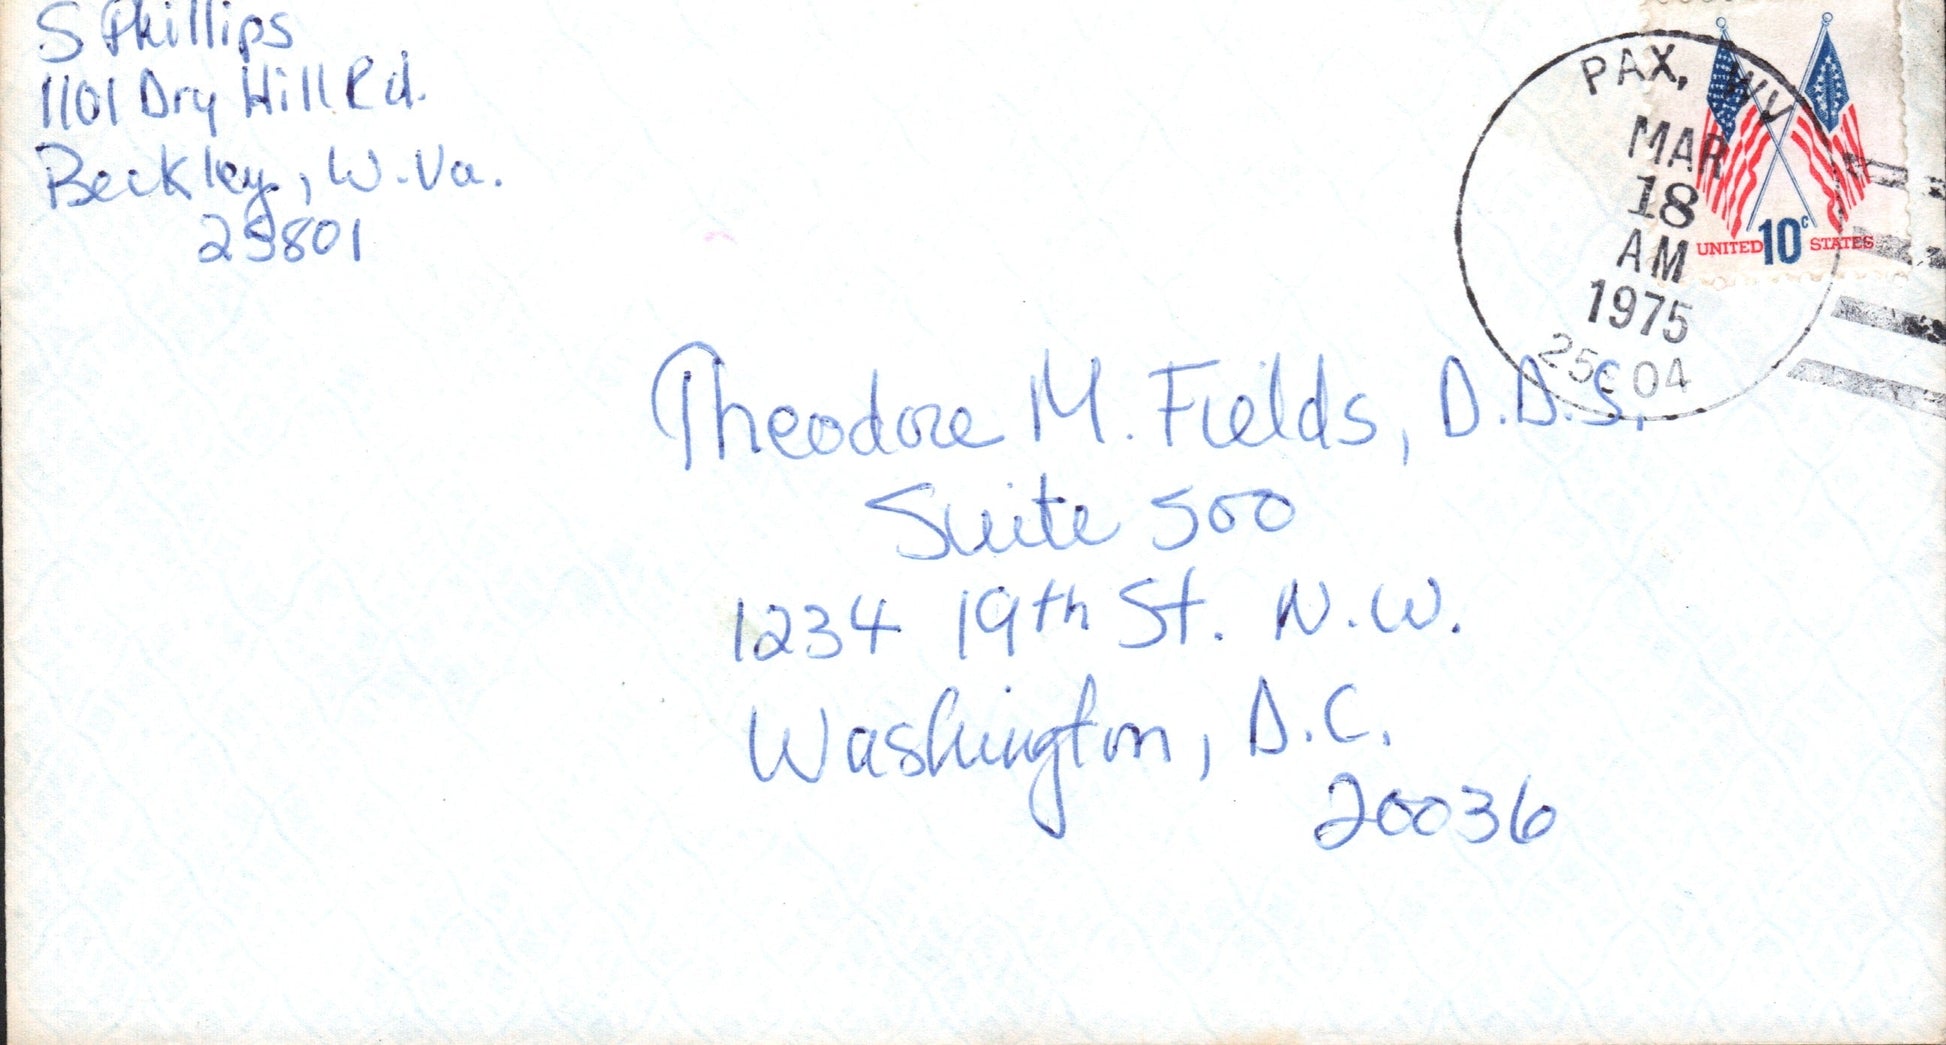 S Phillips
1101 Dry Hill Rd.
Beckley, W.Va.
25801
PAX, WV
MAR
18
AM
1975
25904
UNITED 10c STATES
Theodore M. Fields, D.D.S.
Suite 500
1234 19th St. N.W.
Washington, D.C.
20036